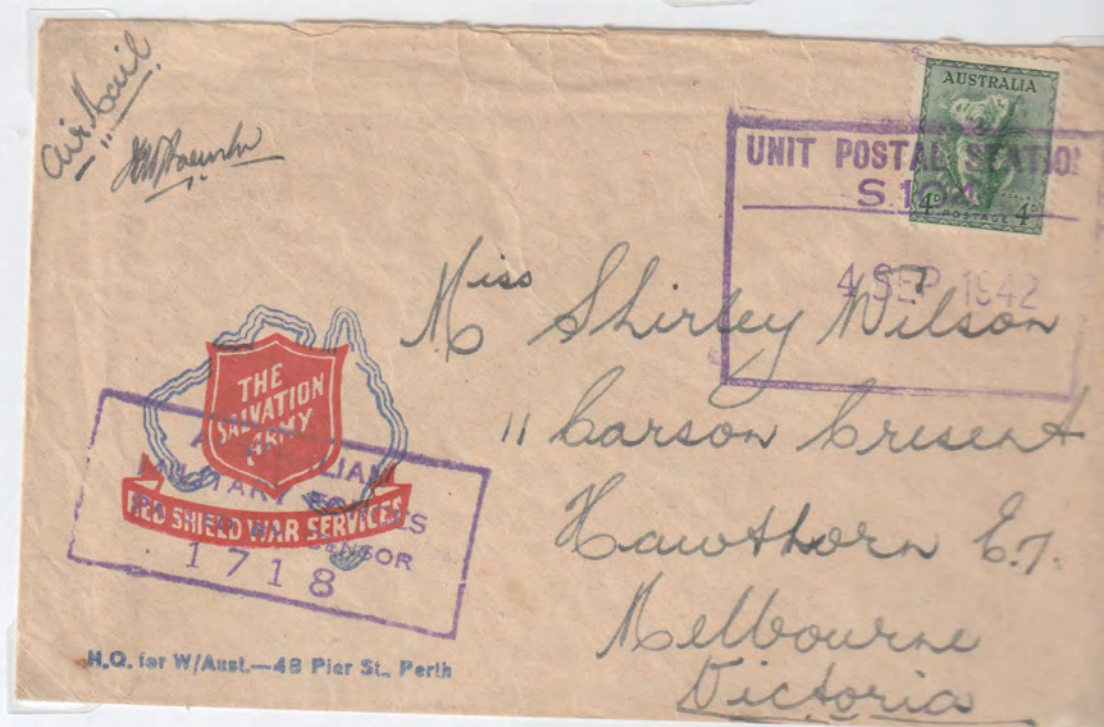 Air Mail
AUSTRALIA
4D POSTAGE 4D
UNIT POSTAL STATION
S.104
4 SEP 1942
Miss Shirley Wilson
11 Carson Cresent
Hawthorn E.7.
Melbourne
Victoria
THE
SALVATION
ARMY
RED SHIELD WAR SERVICES
MILITARY FORCES
CENSOR
1718
H.Q. for W/Aust.—48 Pier St., Perth